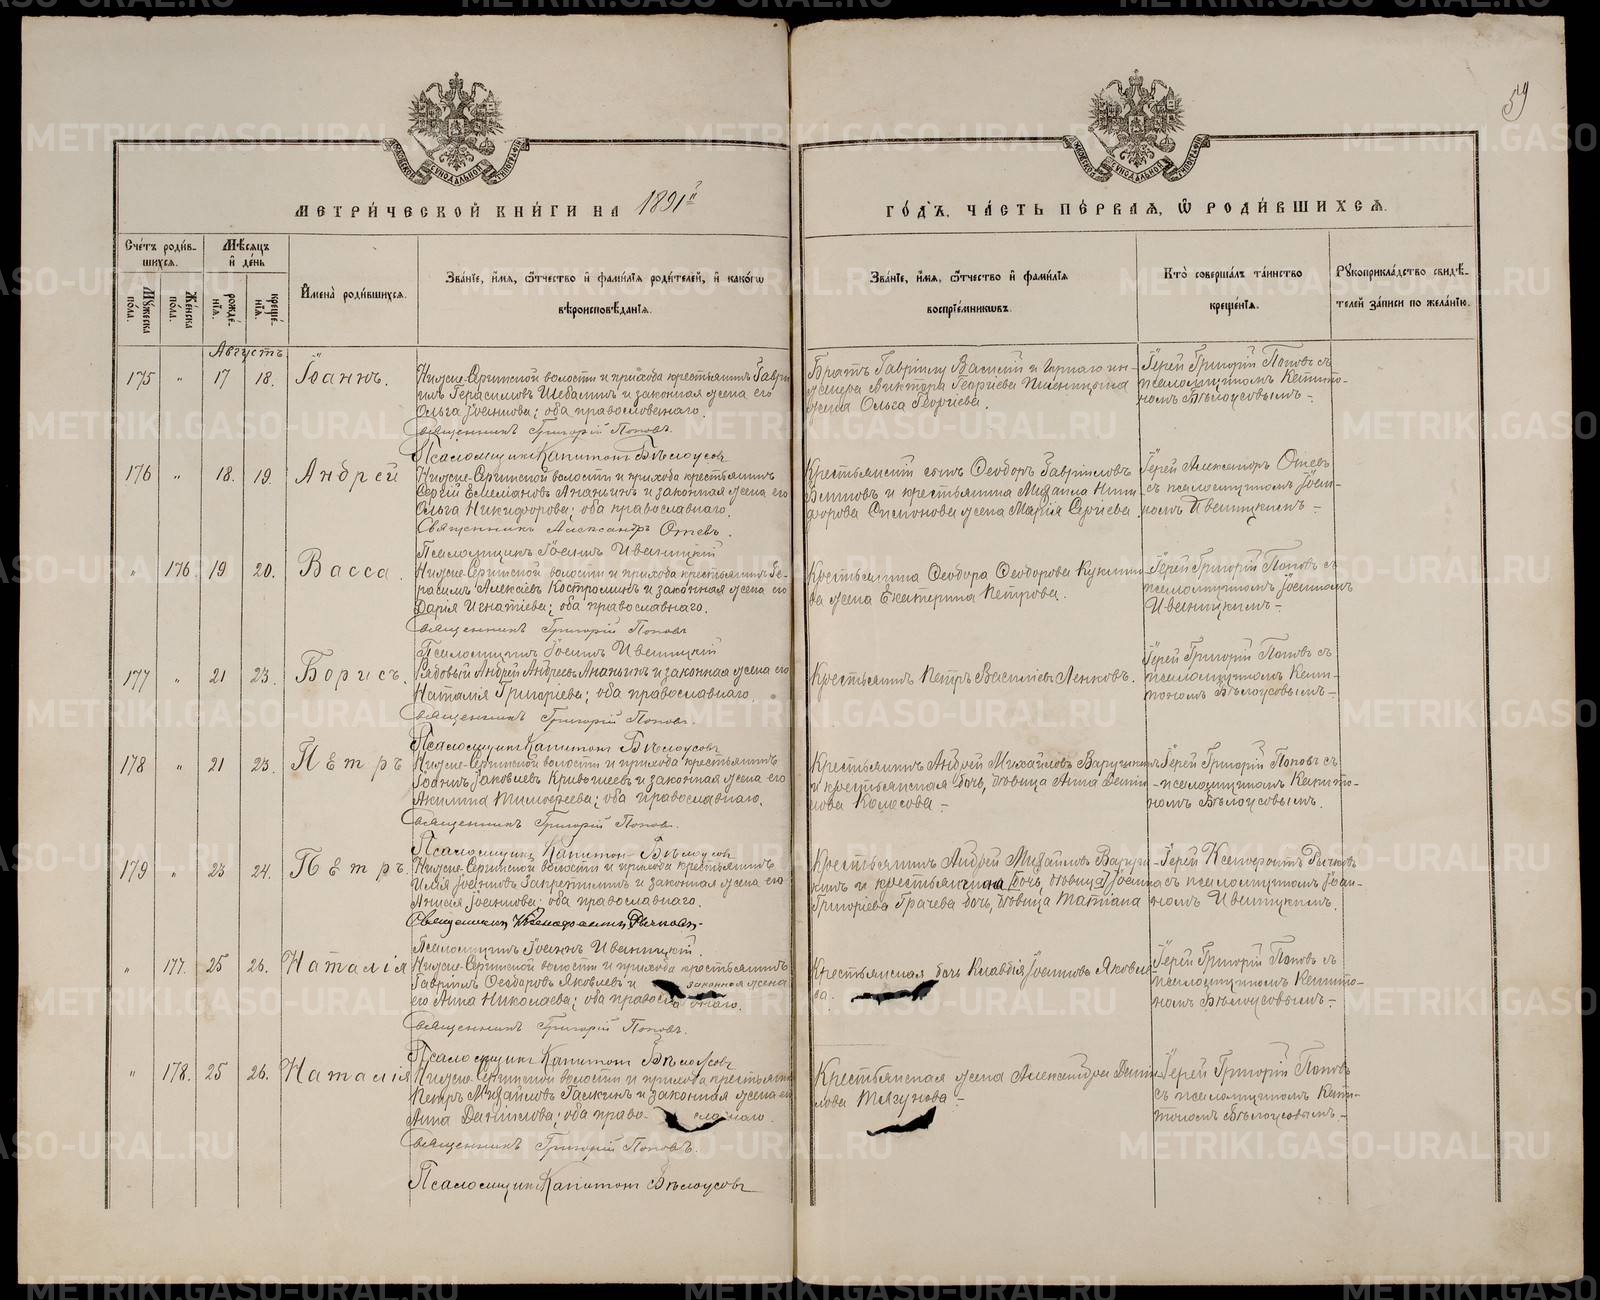 59
МЕТРИ́ЧЕСКОЙ КНИ́ГИ НА 1891й
ГО́ДЪ, ЧА́СТЬ ПЕ́РВАЯ, Ѡ РОДИ́ВШИХСЯ.
Сче́тъ роди́в-
шихся.
Му́жеска по́ла.
Же́нска по́ла.
Мѣ́сяцъ и де́нь
рожде́-
нїя.
креще́-
нїя.
И҆мена̀ роди́вшихся.
Зва́нїе, и҆́мя, ѻ҆́тчество и҆ фами́лїя роди́телей, и҆ како́гѡ
вѣроисповѣ́данїя.
Зва́нїе, и҆́мя, ѻ҆́тчество и҆ фами́лїя
воспрїе́мникѡвъ.
Кто̀ соверша́лъ та́инство
креще́нїя.
Рꙋкоприкла́дство свидѣ́-
телей за́писи по жела́нїю.
Августъ
175 " 17 18. Іоаннъ.
Нижне-Сергинской волости и прихода крестьянинъ Гаврі-
илъ Герасимовъ Шебалинъ и законная жена его
Ольга Іоаннова; оба православнаго.
Священникъ Григорій Поповъ.
Псаломщикъ Капитонъ Бѣлоусовъ
Георгіева
жена Ольга Георгіева.
Іерей Григорій Поповъ съ
псаломщикомъ Капито-
номъ Бѣлоусовымъ
176 " 18. 19. Андрей
Нижне-Сергинской волости и прихода крестьянинъ
Сергій Емельяновъ Ананьинъ и законная жена его
Ольга Никифорова; оба православнаго.
Священникъ Александръ Отевъ.
Псаломщикъ Іоаннъ Ивановский
Крестьянскій сынъ Ѳеодоръ Гавріиловъ
и крестьянина Михаила Ники-
форова Симонова жена Марія Сергіева
Іерей Александръ Отевъ
съ псаломщикомъ Іоан-
номъ
" 176 19 20. Васса.
Нижне-Сергинской волости и прихода крестьянинъ Ге-
расимъ Алексѣевъ Костроминъ и законная жена его
Дарія Игнатіева; оба православнаго.
Священникъ Григорій Поповъ
Псаломщикъ Іоаннъ
Крестьянина Ѳеодора Ѳеодорова Куклина
жена Екатерина Петрова.
Іерей Григорій Поповъ съ
псаломщикомъ Іоанномъ
177 " 21 23. Борисъ.
Рядовый Андрей Андреевъ Ананьинъ и законная жена его
Наталія Григоріева; оба православнаго.
Священникъ Григорій Поповъ.
Псаломщикъ Капитонъ Бѣлоусовъ
Крестьянинъ Петръ Василіевъ Ленковъ.
Іерей Григорій Поповъ съ
псаломщикомъ Капи-
тономъ Бѣлоусовымъ
178 " 21 23. Петръ
Нижне-Сергинской волости и прихода крестьянинъ
Іоаннъ Іаковлевъ Кривошеевъ и законная жена его
Акилина Тимоѳеева; оба православнаго.
Священникъ Григорій Поповъ.
Псаломщикъ Капитонъ Бѣлоусовъ
Крестьянинъ Андрей Михайловъ Варушкинъ
и крестьянская дочь, дѣвица Анна
Колосова
Іерей Григорій Поповъ съ
псаломщикомъ Капито-
номъ Бѣлоусовымъ.
179 " 23 24. Петръ.
Нижне-Сергинской волости и прихода крестьянинъ
Илія Іоанновъ Запретилинъ и законная жена его
Анисія Іоаннова; оба православнаго.
Священникъ Ксенофонтъ Рычковъ
Псаломщикъ Іоаннъ
Крестьянинъ Андрей Михайловъ Варуш-
кинъ и крестьянина Іоанна
Григоріева Грачева дочь, дѣвица Татіана
Іерей Ксенофонтъ Рычковъ
съ псаломщикомъ Іоан-
номъ
" 177. 25 26. Наталія
Нижне-Сергинской волости и прихода крестьянинъ
Гавріилъ Ѳеодоровъ Яковлевъ и законная жена
его Анна Николаева; оба православнаго.
Священникъ Григорій Поповъ.
Псаломщикъ Капитонъ Бѣлоусовъ
Крестьянская дочь Клавдія Іоаннова Яковле-
ва.
Іерей Григорій Поповъ съ
псаломщикомъ Капито-
номъ Бѣлоусовымъ
" 178. 25 26. Наталія
Нижне-Сергинской волости и прихода крестьянинъ
Петръ Михайловъ Галкинъ и законная жена его
Анна Даниилова; оба православнаго.
Священникъ Григорій Поповъ.
Псаломщикъ Капитонъ Бѣлоусовъ
Крестьянская жена Александра Дани-
лова Тягунова
Іерей Григорій Поповъ
съ псаломщикомъ Капи-
тономъ Бѣлоусовымъ
METRIKI.GASO-URAL.RU